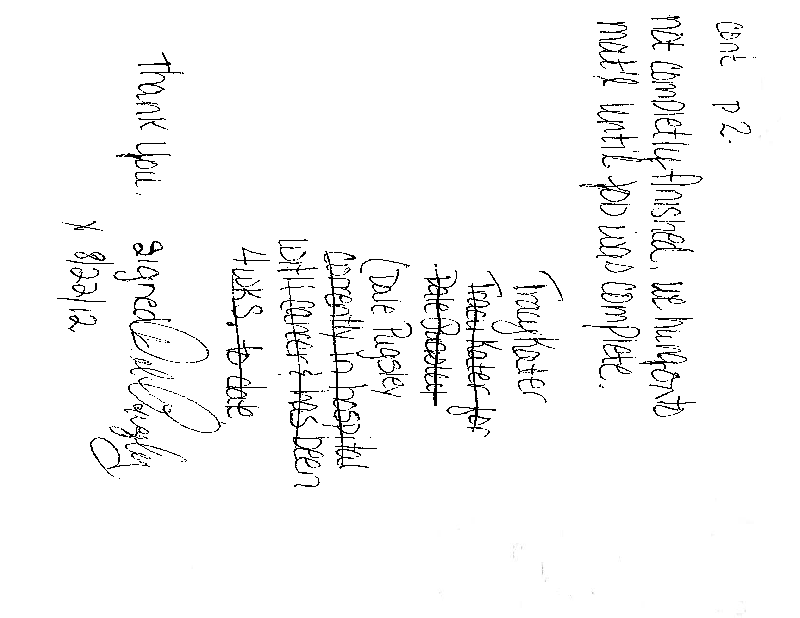 cont p2.
not completly finished, we hung onto
mat'l until job was complete.
Tracy Kater
Tracy Kater for
Dale Pugsley
(Dale Pugsley
currently in hospital
with cancer & has been
4 wks, to date
Thank you.
signed Dale Pugsley
x 8/22/12